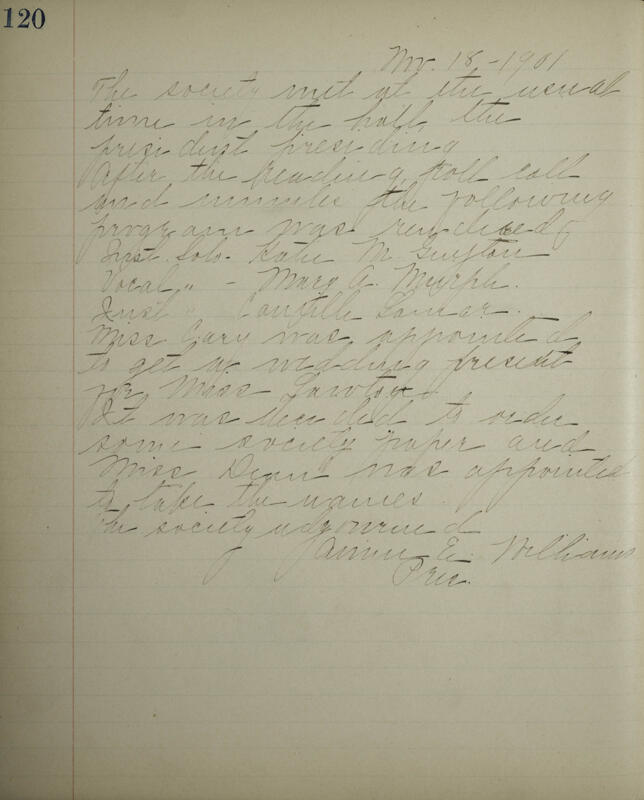 120
Nov. 18, - 1901
The society met at the usual
time in the hall, the
president presiding
After the reading, roll call
and minutes the following
program was rendered
Inst. Solo - Katie M. Guyton
Vocal " - Mary A. Murph.
Inst " Lamar.
Miss Cary was appointed
to get a wedding present
for Miss Lawton.
It was decided to order
some society paper and
Miss Dean was appointed
to take the names.
The society adjourned
E. Williams
Pres.